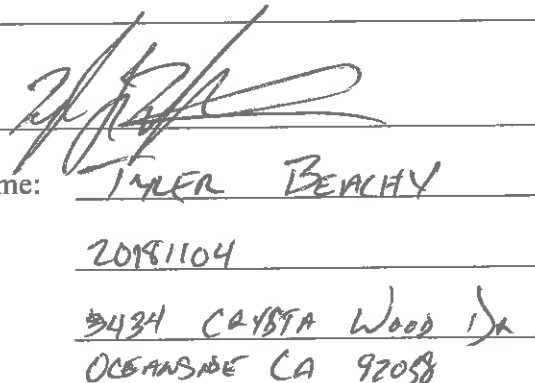 me: TYLER BEACHY
20181104
3434 CRYSTA WOOD DR
OCEANSIDE CA 92058